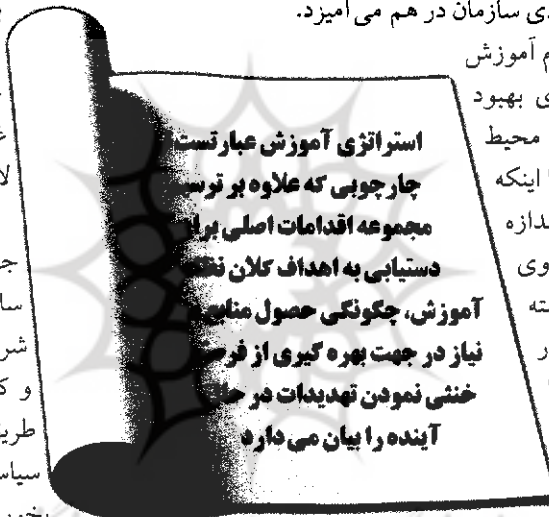 دی سازمان در هم می‌آمیزد.
م آموزش
ی بهبود
محیط
اینکه
دازه
وی
استراتژی آموزش عبارتست
چارچوبی که علاوه بر ترسی
مجموعه اقدامات اصلی برای
دستیابی به اهداف کلان نظ
آموزش، چگونگی حصول منابع
نیاز در جهت بهره گیری از فر
خنثی نمودن تهدیدات در
آینده را بیان می‌دارد
و ک
طری
سیاس